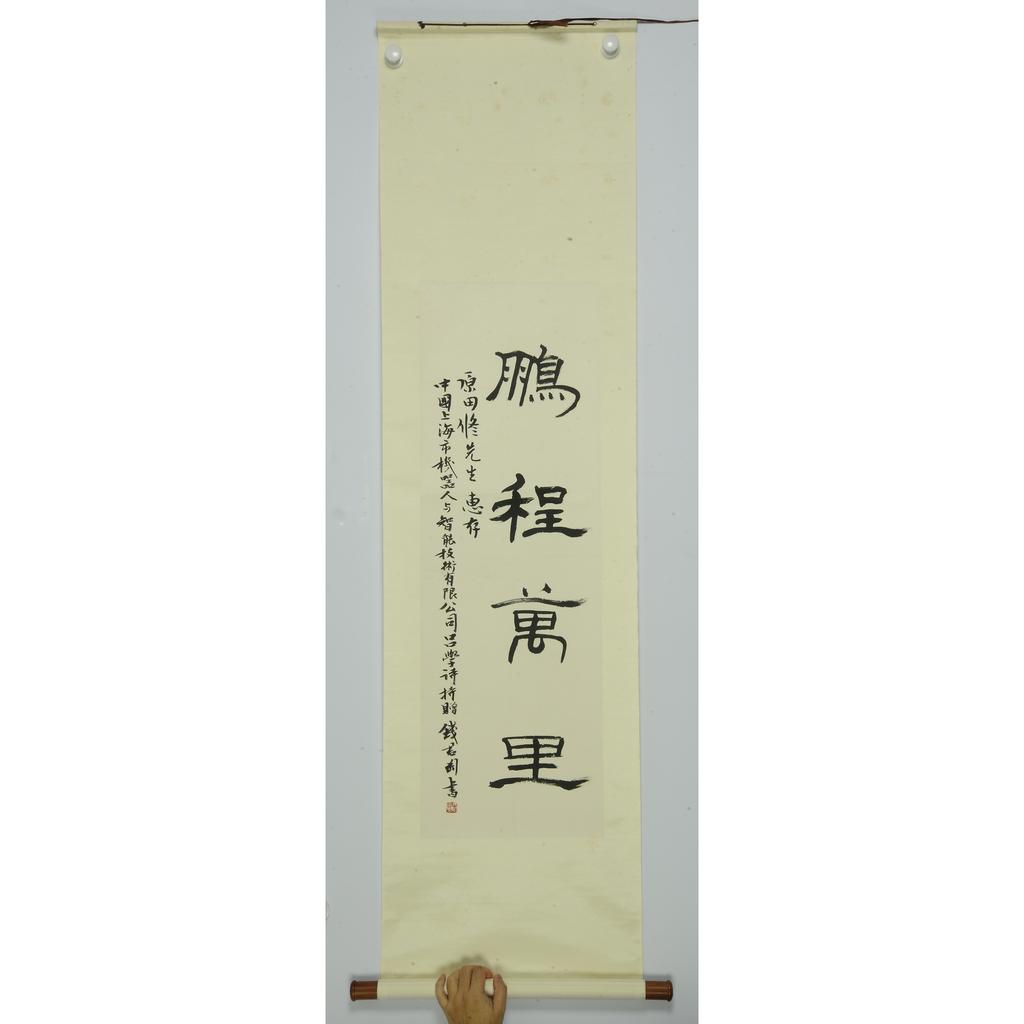 鵬程萬里
原田修先生惠存
中國上海市機器人与智能技術有限公司呂學诗持贈 錢君匋書